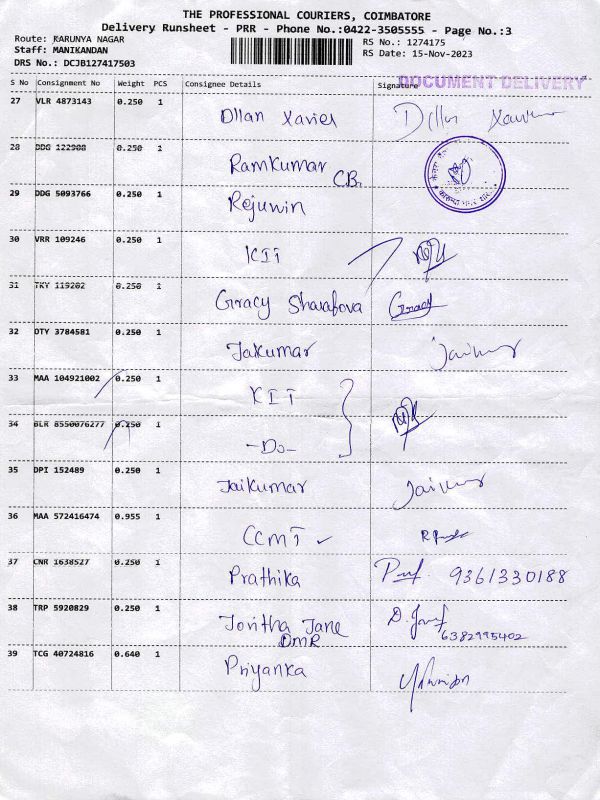 THE PROFESSIONAL COURIERS, COIMBATORE
Delivery Runsheet - PRR - Phone No.:0422-3505555 - Page No.:3
Route: KARUNYA NAGAR
Staff: MANIKANDAN
DRS No.: DCJB127417503
RS No.: 1274175
RS Date: 15-Nov-2023
DOCUMENT DELIVERY
S No Consignment No Weight PCS Consignee Details Signature
27 VLR 4873143 0.250 1 Dllan Xavier Dllan Xavier
28 DDG 122908 0.250 1 Ramkumar CB.
29 DDG 5093766 0.250 1 Rejuwin
30 VRR 109246 0.250 1 KIT
31 TKY 119202 0.250 1 Gracy Sharafova Gracy
32 OTY 3784581 0.250 1 Jakumar Jaikumar
33 MAA 104921002 0.250 1 KIT
34 BLR 8550076277 0.250 1 -Do-
35 DPI 152489 0.250 1 Jaikumar Jaikumar
36 MAA 572416474 0.955 1 CCMT
37 CNR 1638527 0.250 1 Prathika 9361330188
38 TRP 5920829 0.250 1 Joritha Jane
DMR 6382995402
39 TCG 40724816 0.640 1 Priyanka